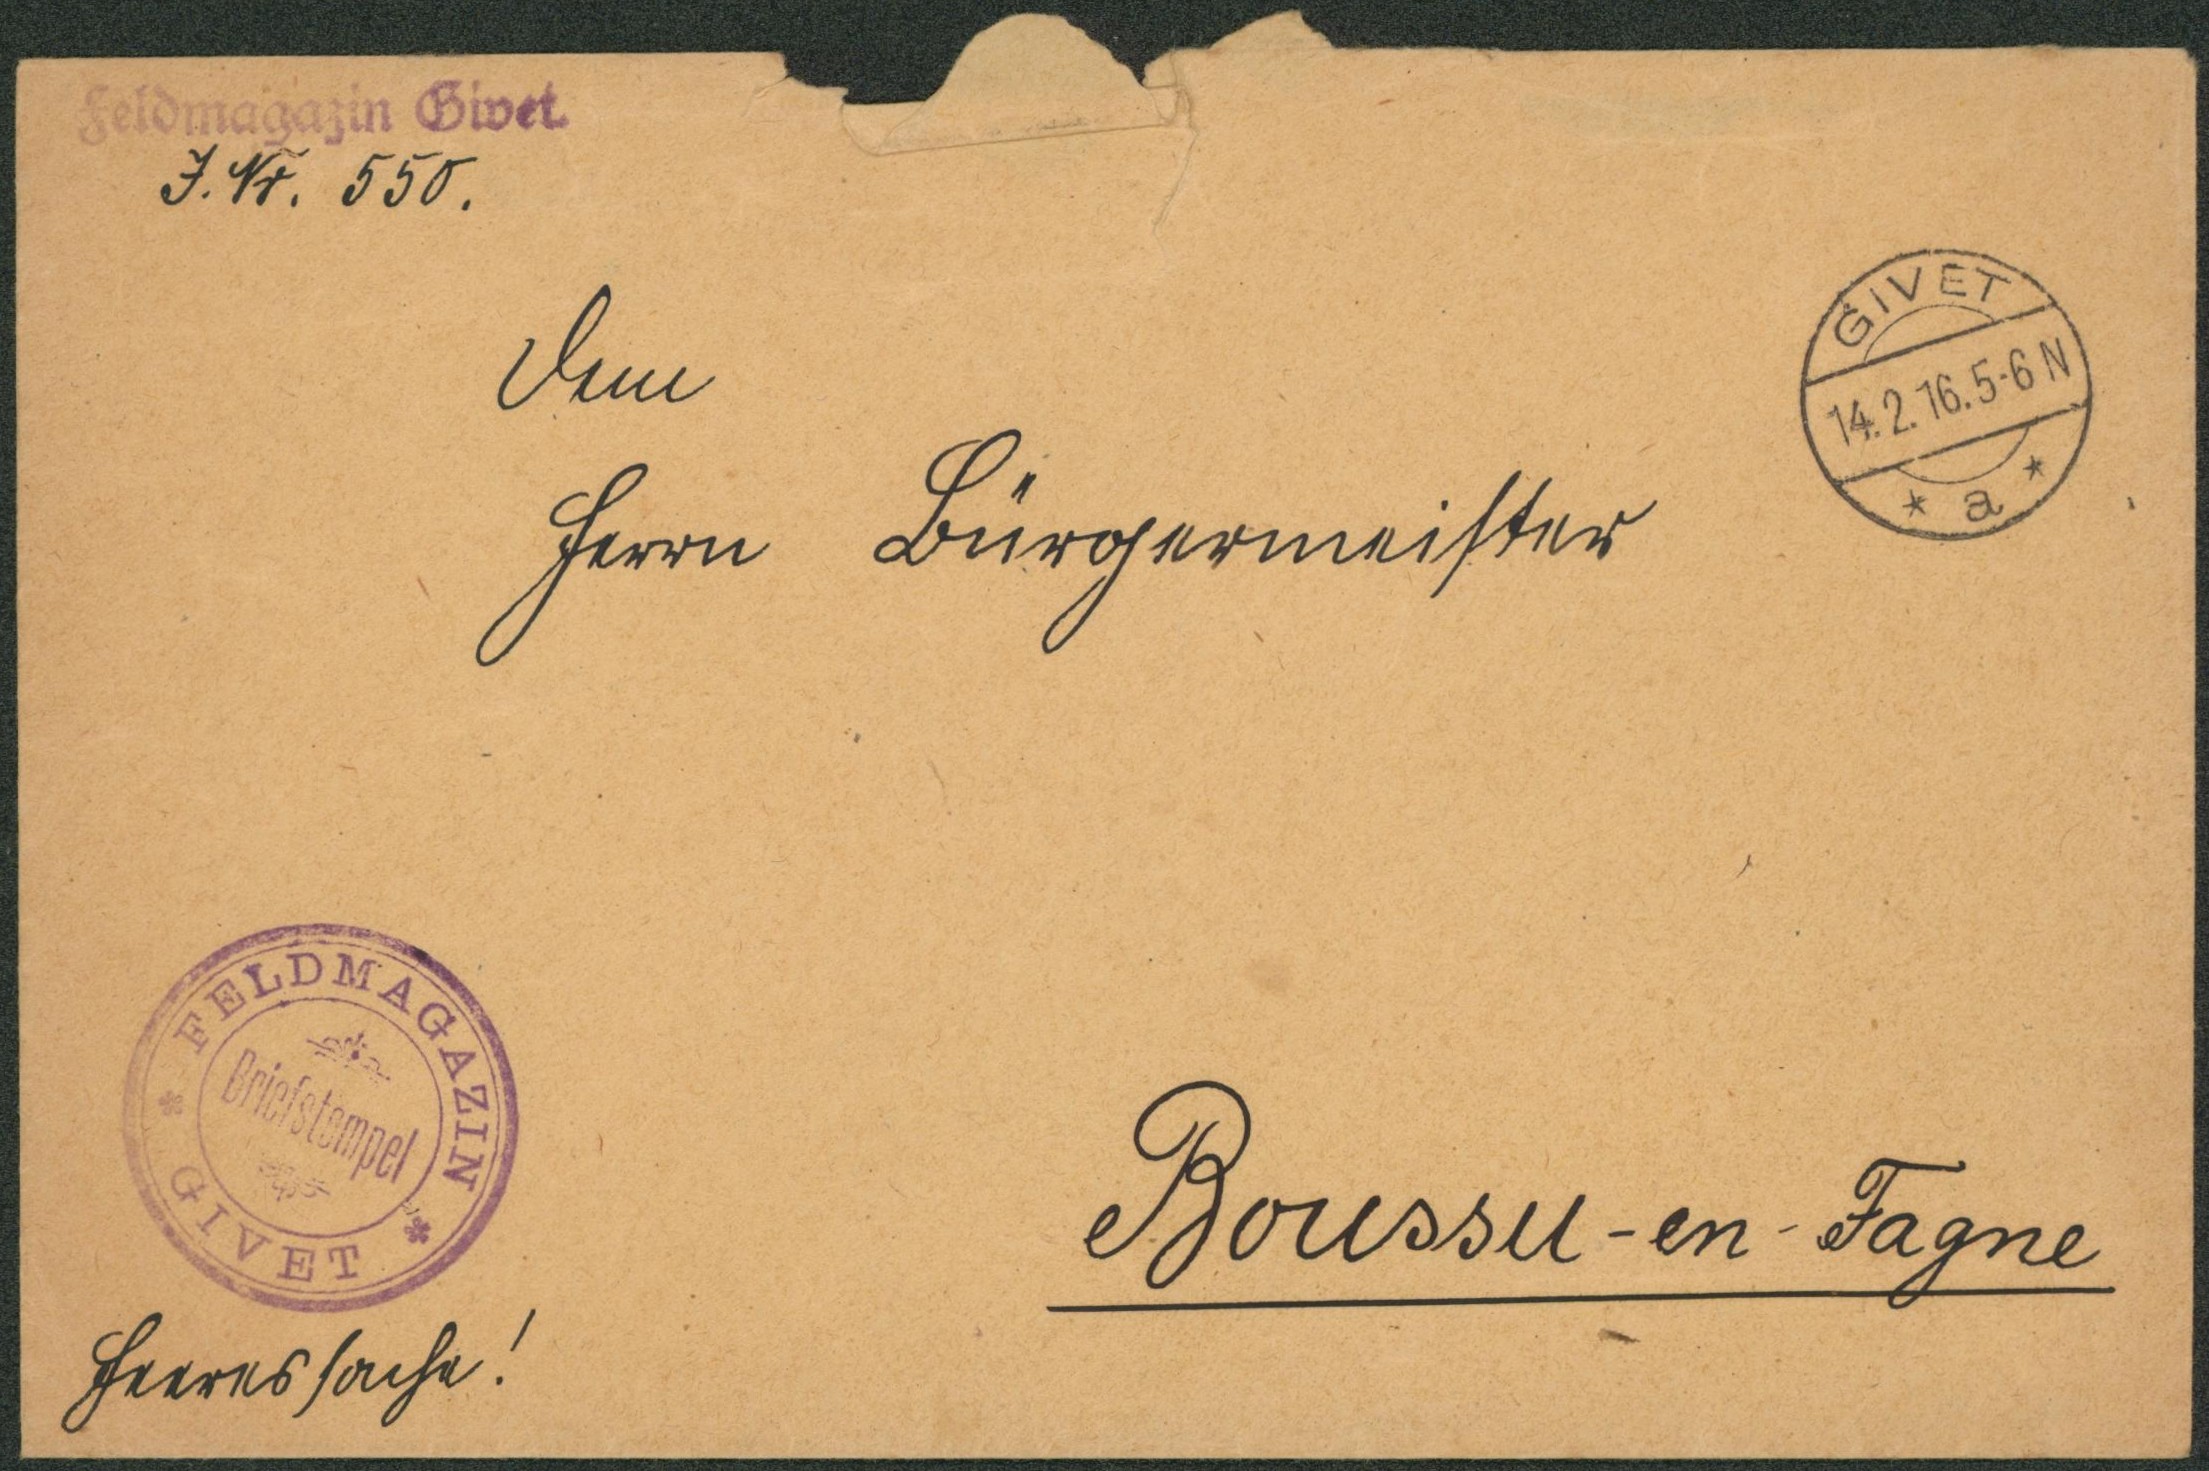 Feldmagazin Givet.
J. Nr. 550.
GIVET
14.2.16.5-6 N
* a *
Dem
Herrn Bürgermeister
FELDMAGAZIN
Briefstempel
* GIVET *
Boussu-en-Fagne
Heeressache!